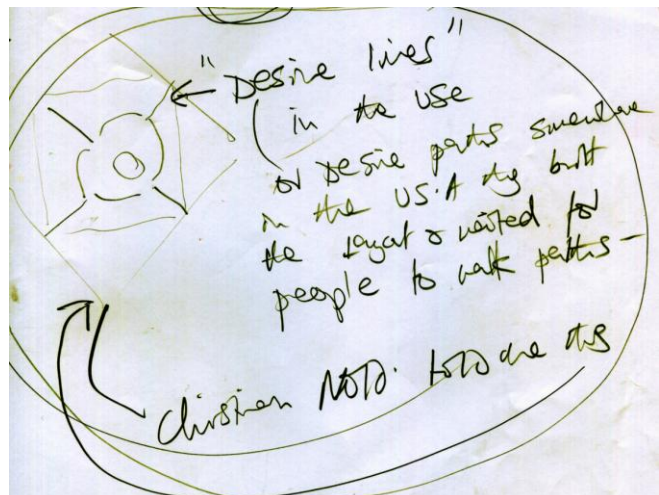 "Desire lines"
in the use
or Desire paths somewhere
in the US.A they built
the layout & waited for
people to walk paths –
Christian Nold. told me this